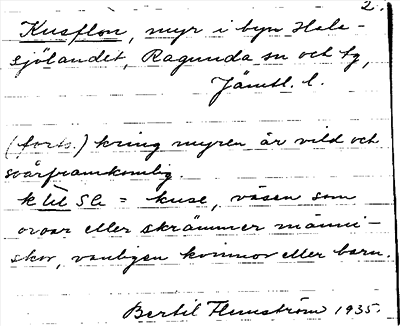 2.
Kusflon, myr i byn Hals-
sjölandet, Ragunda sn och tg,
Jämtl. l.
(forts.) kring myren är vild och
svårframkomlig.
= kuse, väsen som
oroar eller skrämmer männi-
skor, vanligen kvinnor eller barn.
Bertil Flemström 1935.